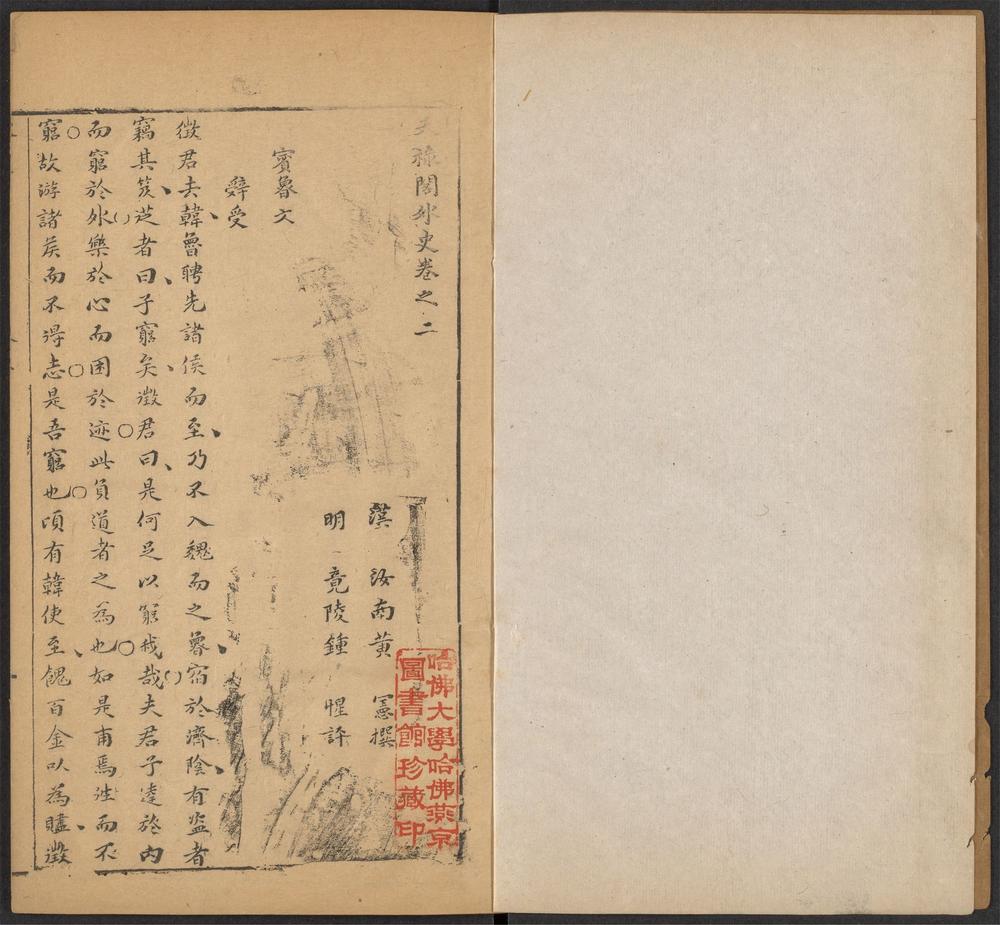 天祿閣外史卷之二
漢　汝南黄　憲撰
明　竟陵鍾　惺評
賓魯文
辤受
徴君去韓魯聘先諸侯而至乃不入魏而之魯宿於濟陰有盗者
竊其笈從者曰子窮矣徴君曰是何足以窮我哉夫君子達於内
而窮於外樂於心而困於迹此負道者之為也如是甫焉徃而不
窮故游諸矦而不得志是吾窮也頃有韓使至餽百金以為贐徴
哈佛大學哈佛燕京
圖書館珍藏印